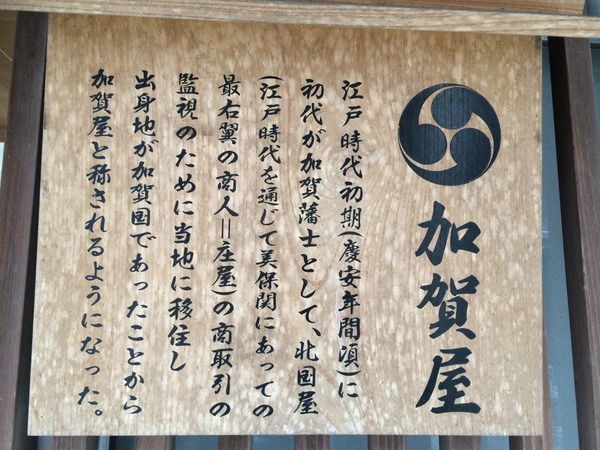 加賀屋
江戸時代初期(慶安年間頃)に
初代が加賀藩士として、北国屋
(江戸時代を通じて美保関にあっての
最右翼の商人=庄屋)の商取引の
監視のために当地に移住し
出身地が加賀国であったことから
加賀屋と称されるようになった。